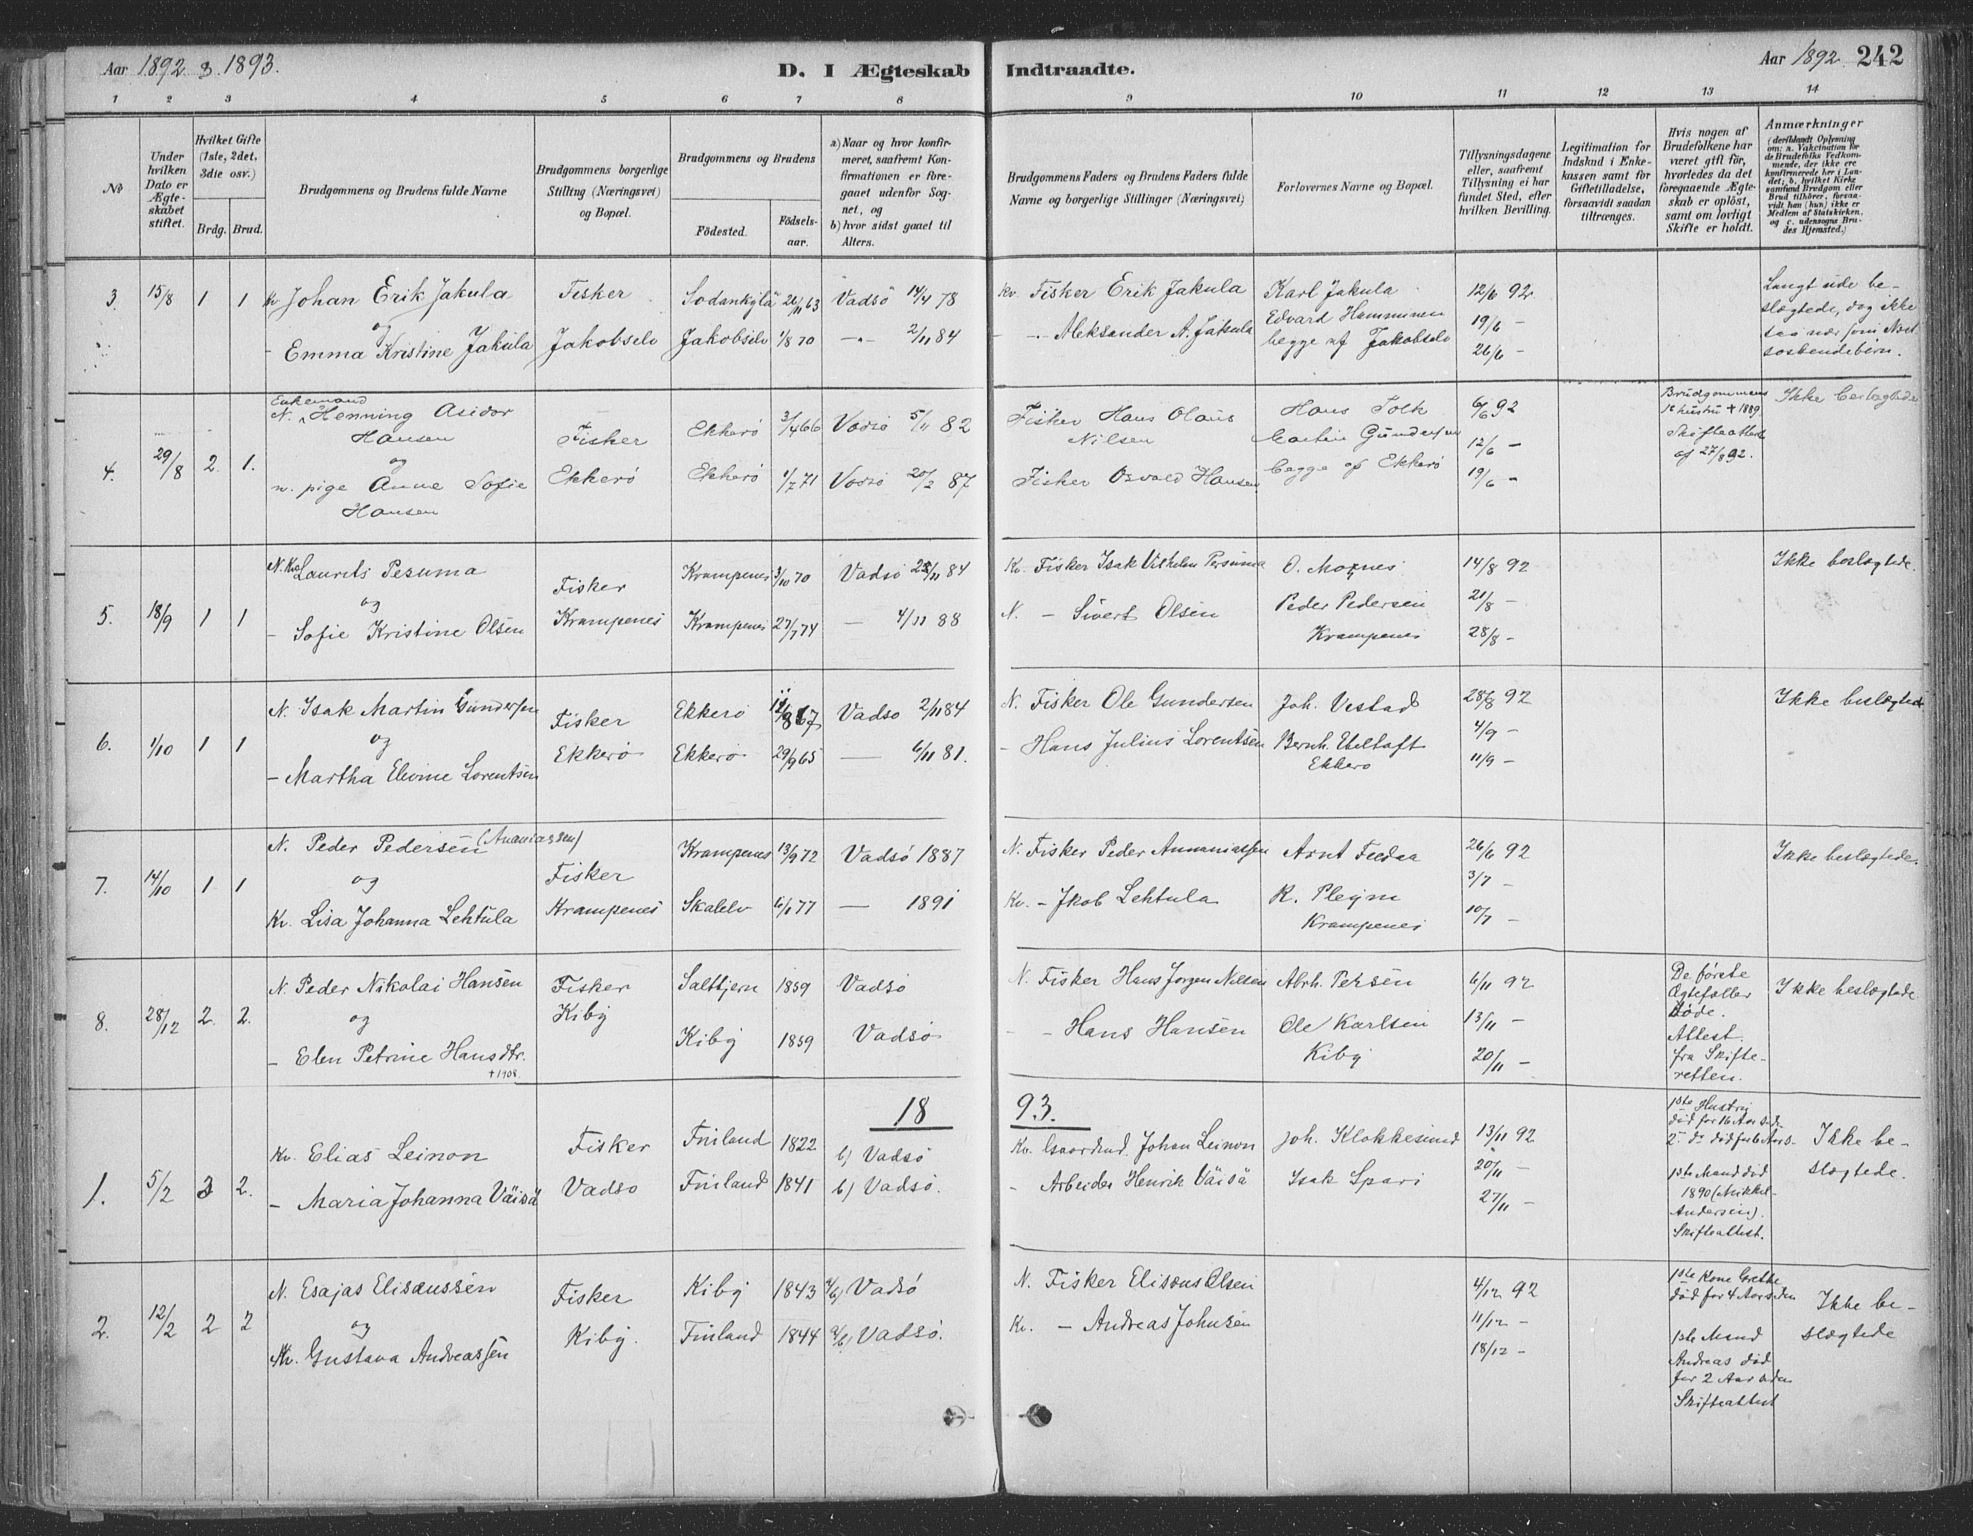 Aar 1892 & 1893.
D. I Ægteskab Indtraadte.
Aar 1892 242
1 2 3 4 5 6 7 8 9 10 11 12 13 14
No
Under hvilken Dato er Ægteskabet stiftet.
Hvilket Gifte (1ste, 2det, 3die osv.)
Brdg. Brud.
Brudgommens og Brudens fulde Navne
Brudgommens borgerlige Stilling (Næringsvei) og Bopæl.
Brudgommens og Brudens
Födested.
Födselsaar.
a) Naar og hvor konfirmeret, saafremt Konfirmationen er foregaaet udenfor Sognet, og
b) hvor sidst gaaet til Alters.
Brudgommens Faders og Brudens Faders fulde Navne og borgerlige Stillinger (Næringsvei)
Forlovernes Navne og Bopæl.
Tillysningsdagene eller, saafremt Tillysning ei har fundet Sted, efter hvilken Bevilling.
Legitimation for Indskud i Enkekassen samt for Giftetilladelse, forsaavidt saadan tiltrænges.
Hvis nogen af Brudefolkene har været gift för, hvorledes da det foregaaende Ægteskab er oplöst, samt om lovligt Skifte er holdt.
Anmærkninger (deriblandt Oplysning om: a. Vakcination for de Brudefolks Vedkommende, der ikke ere konfirmerede her i Landet; b. hvilket Kirkesamfund Brudgom eller Brud tilhörer, forsaavidt han (hun) ikke er Medlem af Statskirken, og c. udensogns Brudes Hjemsted.)
3. 15/8 1 1 Kv Johan Erik Jakula Fisker Sodankylä 26/11 63 Vadsö 14/4 78 Kv. Fisker Erik Jakula Karl Jakula 12/6 92 Langt ude be-
og Edvard Hamminen 19/6 - slægtede, dog ikke
- Emma Kristine Jakula Jakobselv Jakobselv 1/8 70 -"- 2/11 84 - "- Aleksander A. Jakula begge af Jakobselv 26/6 - saa nær som Næst-
søskendebørn.
4. 29/8 2. 1. Enkemand
N. Henning Asidor Hansen Fisker Ekkerö 3/4 66 Vadsö 5/11 82 Fisker Hans Olaus Nilsen Hans Tolk 6/6 92 Brudgommens Ikke beslægtede
1e hustru + 1889
og Martin Gundersen 12/6 - Skifteattest
n. pige Anne Sofie Hansen Ekkerö Ekkerö 1/7 71 Vadsö 20/2 87 Fisker Osvald Hansen begge af Ekkerö 19/6 - af 27/8 92.
5. 18/9 1 1 N. Kv Laurits Pesuma Fisker Krampenes 3/10 70 Vadsö 23/11 84 Kv. Fisker Isak Vilhelm Personma O. Moxnes 14/8 92 Ikke beslægtede.
og
- Sofie Kristine Olsen Krampenes Krampenes 27/7 74 — 4/11 88 N. - Sivert Olsen Peder Pedersen 21/8 -
Krampenes 28/8 -
6. 1/10 1 1 N. Isak Martin Gundersen Fisker Ekkerö 67 Vadsö 2/11 84 N. Fisker Ole Gundersen Joh. Vestad 28/8 92 Ikke beslægtede
og 4/9 -
- Martha Elvine Lorentsen Ekkerö Ekkerö 29/9 65 — 6/11 81. - Hans Julius Lorentsen Bernh. Ebeltoft 11/9 -
Ekkero
7. 14/10 1 1 N. Peder Pedersen (Ananiassen) Fisker Krampenes 13/9 72 Vadsö 1887 N. Fisker Peder Annaniassen Arnt Feedaa 26/6 92 Ikke beslægtede.
og 3/7 -
Kv. Lisa Johanna Lehtula Krampenes Skalelv 6/1 77 — 1891 Kv. - Jkob Lehtula R. Pleym 10/7 -
Krampenes
8. 28/12 2. 2. N. Peder Nikolai Hansen Fisker Saltbjern 1859 Vadsö N. Fisker Hans Jørgen Nilsen Abrh. Persen 6/11 92 De første Ikke beslægtede
og Kiby Ægtefæller
- Elen Petrine Hansdtr. Kiby 1859 Vadsö - - Hans Hansen Ole Karlsen 13/11 - døde.
+ 1908. Kiby 20/11 - Attest.
fra Skifte-
retten.
1893.
1. 5/2 3 2. Kv. Elias Leinon Fisker Finland 1822 b) Vadsö Kv. Gaardmd. Johan Leinon Joh. Klokkesund 13/11 92 1ste Hustru Ikke be-
død for 16 Aar sid. slægtede.
2. do død for 6 Aar s-
- Maria Johanna Väisä Vadsö Finland 1841 b) Vadsö. - Arbeider Henrik Väisä Isak Spari 20/11 - 1ste Mand død
27/11 - 1890 (Mikkel
Andersen).
Skifteattest.
2. 12/2 2 2 N. Esajas Elisæussen Fisker Kiby 1843 a/b) Vadsö N. Fisker Elisæus Olsen 4/12 92 1ste Kone Grethe Ikke be-
og død for 4 Aar siden slægtede
Kv. Gustava Andreassen Kiby. Finland 1844 a/b) Vadsö. Kv. - Andreas Johnsen 11/12 - 1ste Mand
18/12 - Andreas død
for 2 Aar siden
Skifteattest